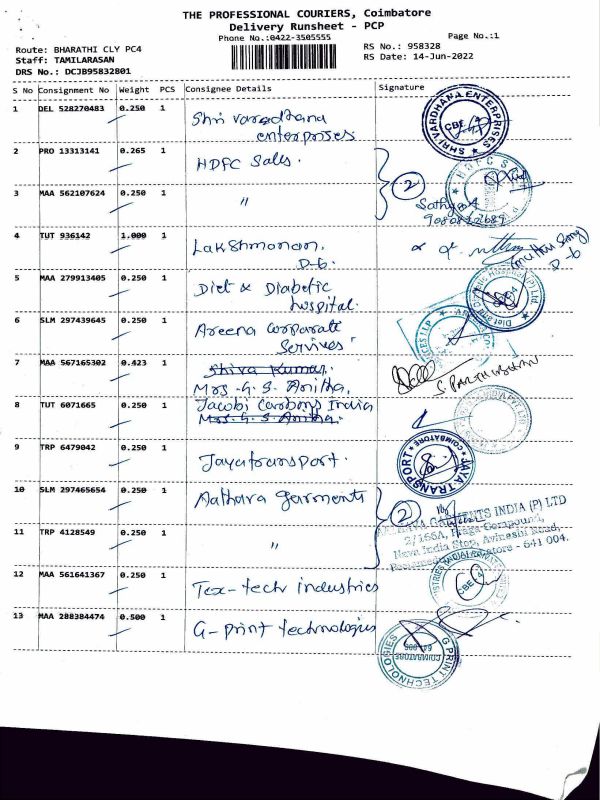 THE PROFESSIONAL COURIERS, Coimbatore
Delivery Runsheet - PCP
Phone No.:0422-3505555
Page No.:1
Route: BHARATHI CLY PC4
RS No.: 958328
Staff: TAMILARASAN
RS Date: 14-Jun-2022
DRS No.: DCJB95832801
S No Consignment No Weight PCS Consignee Details Signature
1 DEL 528270483 0.250 1 Shri varadhana
enterprises
SHRI VARDHANA ENTERPRISES
CBE
2 PRO 13313141 0.265 1 HDFC Sales.
2
3 MAA 562107624 0.250 1 "
Sathya
4 TUT 936142 1.000 1 Lakshmanan.
D-6.
D-6
5 MAA 279913405 0.250 1 Diet & Diabetic
hospital.
6 SLM 297439645 0.250 1 Areena Corporate
Servives
7 MAA 567165302 0.423 1 Shiva Kumar.
Mrs. G. S. Anitha.
8 TUT 6071665 0.250 1 Jacobi Carbons India
Mrs. G. S. Anitha.
9 TRP 6479042 0.250 1 Jayatransport.
JAYA TRANSPORT
COIMBATORE
10 SLM 297465654 0.250 1 Aathava garments
2
GARMENTS INDIA (P) LTD
11 TRP 4128549 0.250 1 "
2/166A,
Nava India Stop, Avinashi Road,
641 004.
12 MAA 561641367 0.250 1 Tex-tech industries
CBE
13 MAA 288384474 0.500 1 G-print technologies
G PRINT TECHNOLOGIES
COIMBATORE